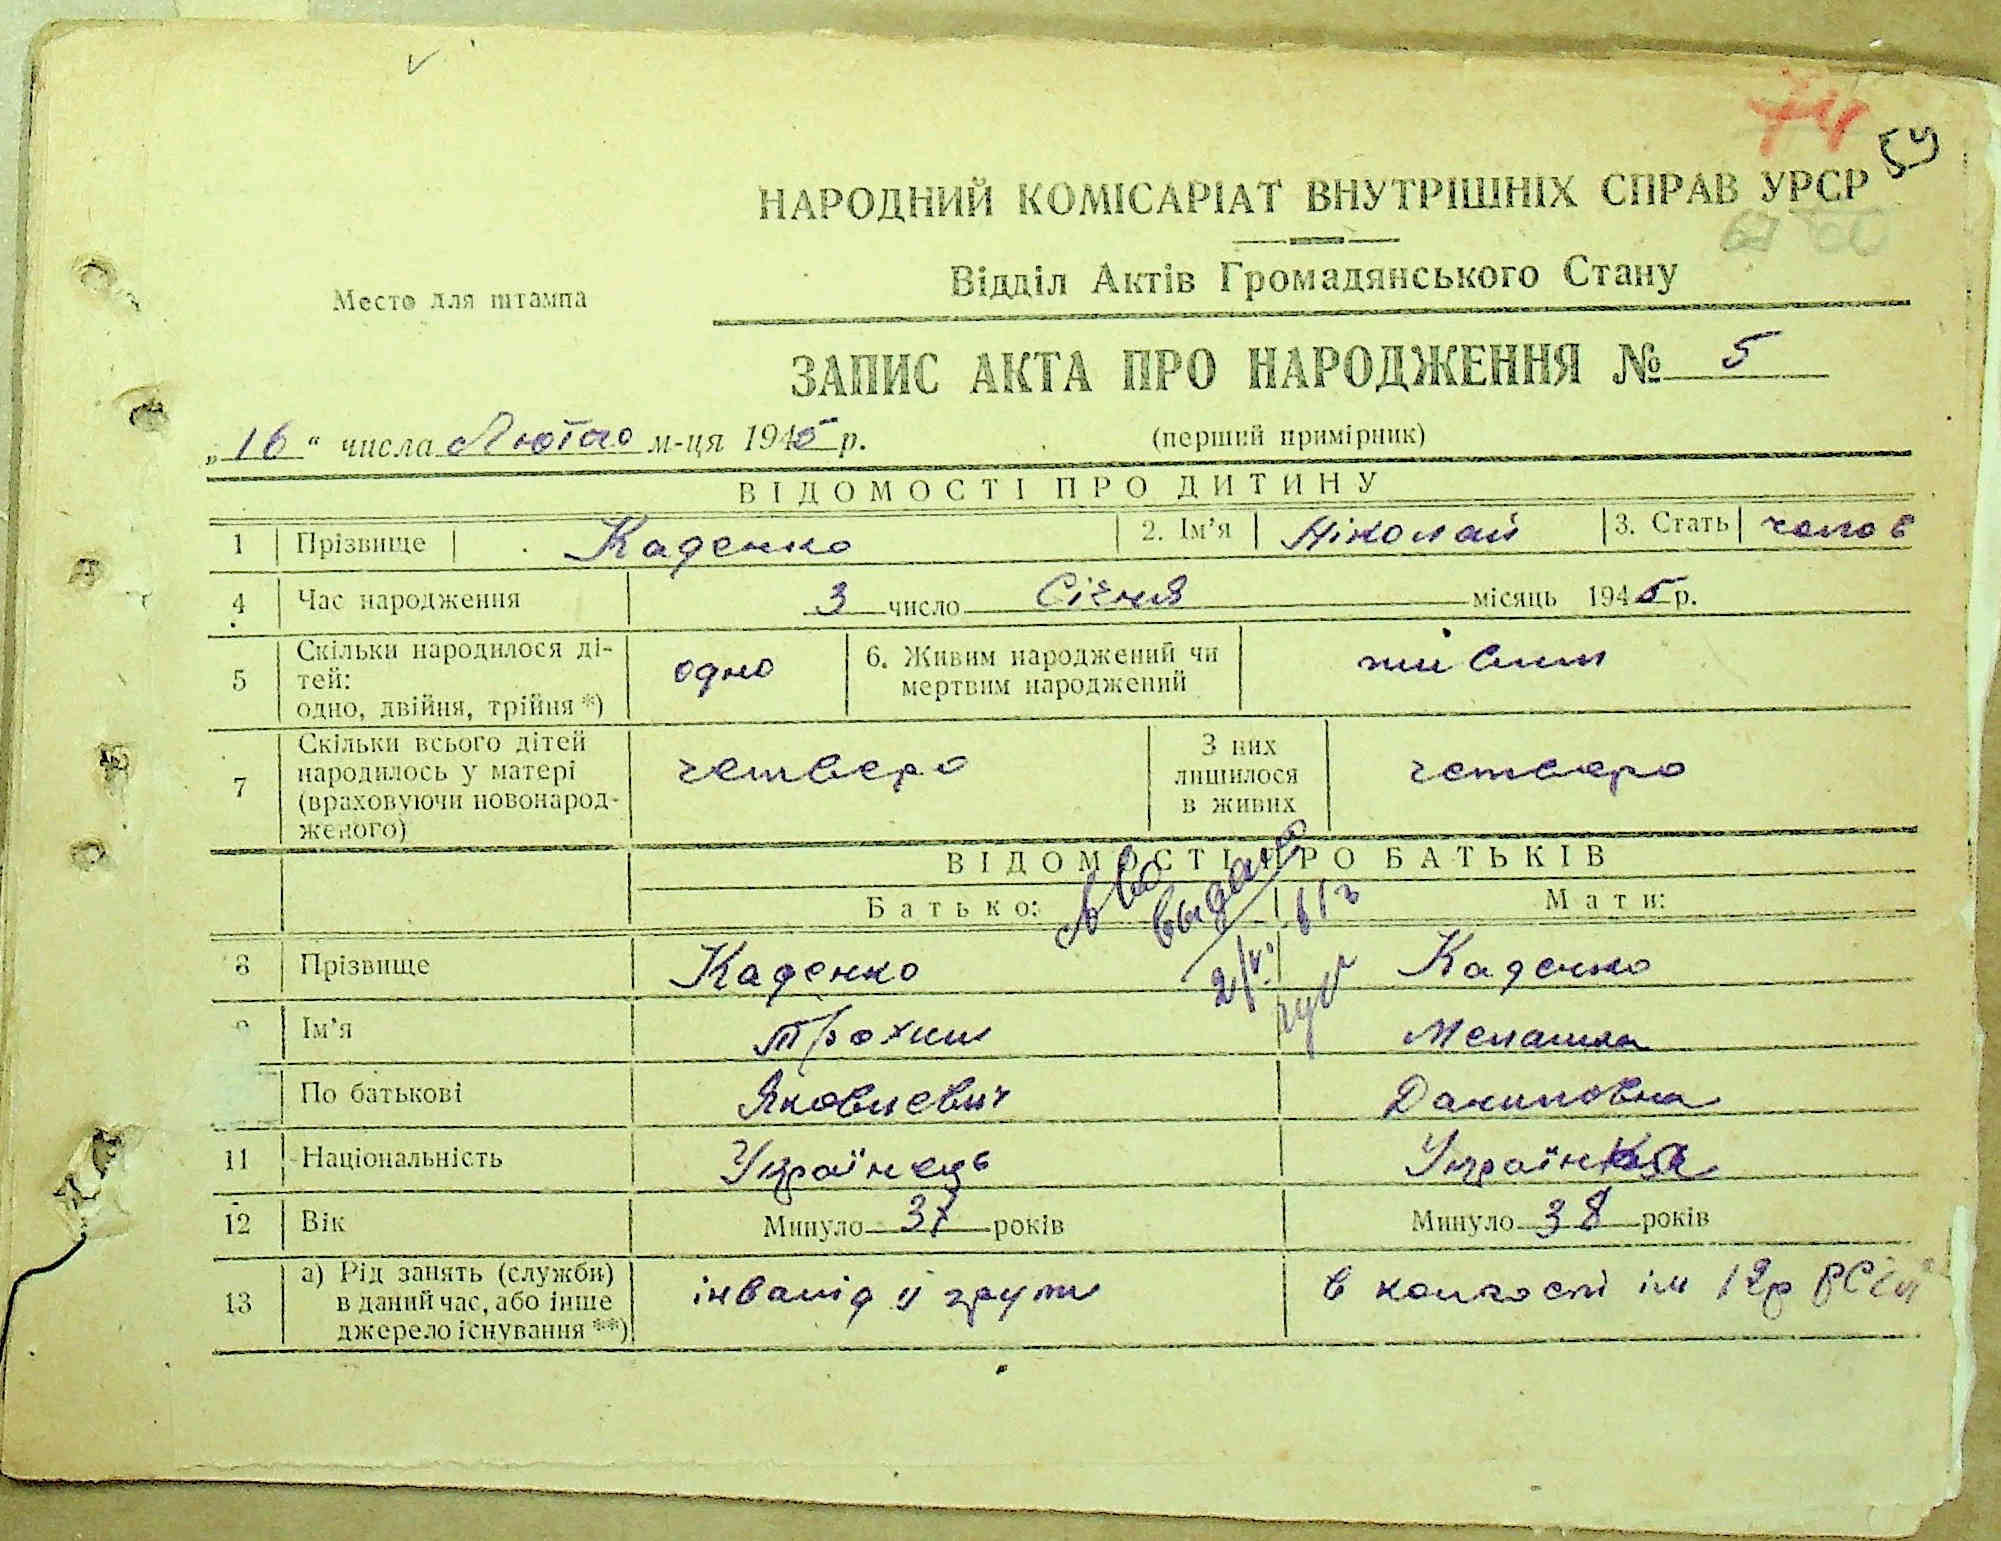 74
54
НАРОДНИЙ КОМІСАРІАТ ВНУТРІШНІХ СПРАВ УРСР
Відділ Актів Громадянського Стану
Место для штампа
ЗАПИС АКТА ПРО НАРОДЖЕННЯ № 5
„16“ числа Лютао м-ця 1945 р.
(перший примірник)
ВІДОМОСТІ ПРО ДИТИНУ
1 Прізвище Каденко 2. Ім’я Ніколай 3. Стать чолов
4 Час народження 3 число Січня місяць 1945 р.
5 Скільки народилося ді-
тей:
одно, двійня, трійня *) одно 6. Живим народжений чи
мертвим народжений живим
7 Скільки всього дітей
народилось у матері
(враховуючи новонарод-
женого) четверо З них
лишилося
в живих четверо
ВІДОМОСТІ ПРО БАТЬКІВ
Батько: Мати:
св во
выдано
8 Прізвище Каденко Каденко
9 Ім’я Трохим Мелашка
По батькові Яковлевич Даниловна
11 Національність Українець Українка
12 Вік Минуло 37 років Минуло 38 років
13 а) Рід занять (служби)
в даний час, або інше
джерело існування **) інвалід II групи в колгоспі ім 12р РСЧА